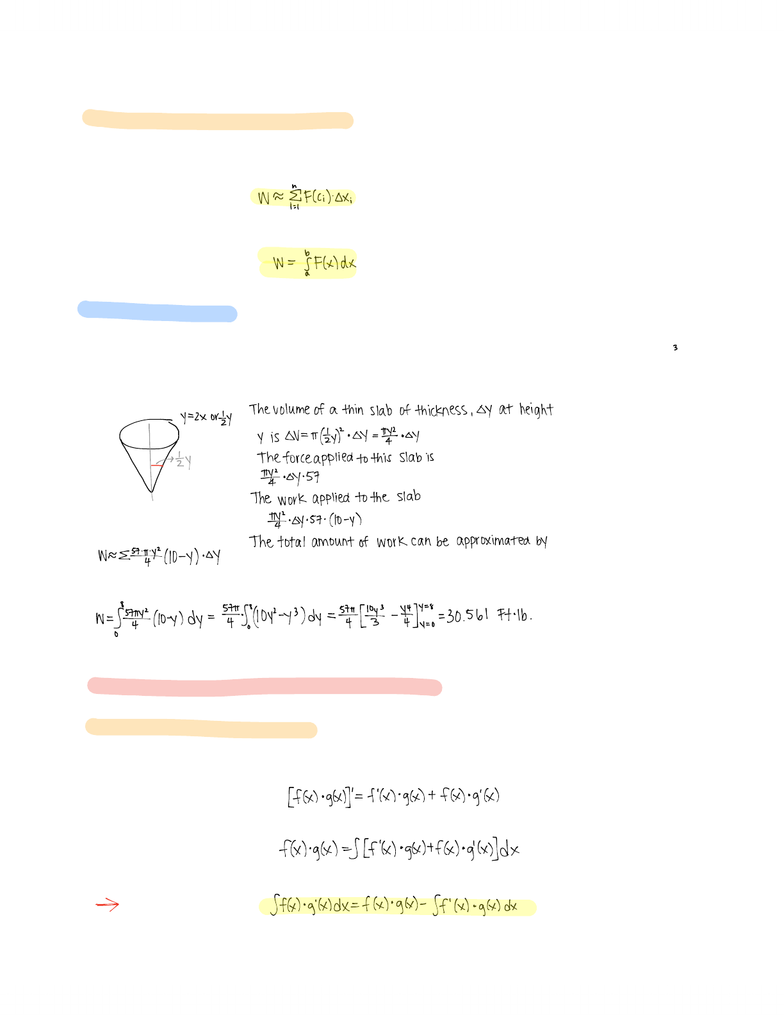 W ≈ Σ_{i=1}^{n} F(ci)·Δxi
W = ∫_a^b F(x) dx
3
y=2x or ½y
→ ½y
The volume of a thin slab of thickness, Δy at height
y is ΔV = π(½y)²·Δy = πy²/4·Δy
The force applied to this slab is
πy²/4·Δy·57
The work applied to the slab
πy²/4·Δy·57·(10-y)
The total amount of work can be approximated by
W≈Σ 57·π·y²/4 (10-y)·Δy
W=∫_0^8 57πy²/4 (10-y) dy = 57π/4·∫_0^8 (10y²-y³) dy = 57π/4 [10y³/3 - y⁴/4]_{y=0}^{y=8} = 30.561 Ft·lb.
[f(x)·g(x)]' = f'(x)·g(x) + f(x)·g'(x)
f(x)·g(x) = ∫[f'(x)·g(x)+f(x)·g'(x)]dx
→ ∫f(x)·g'(x)dx = f(x)·g(x) - ∫f'(x)·g(x) dx